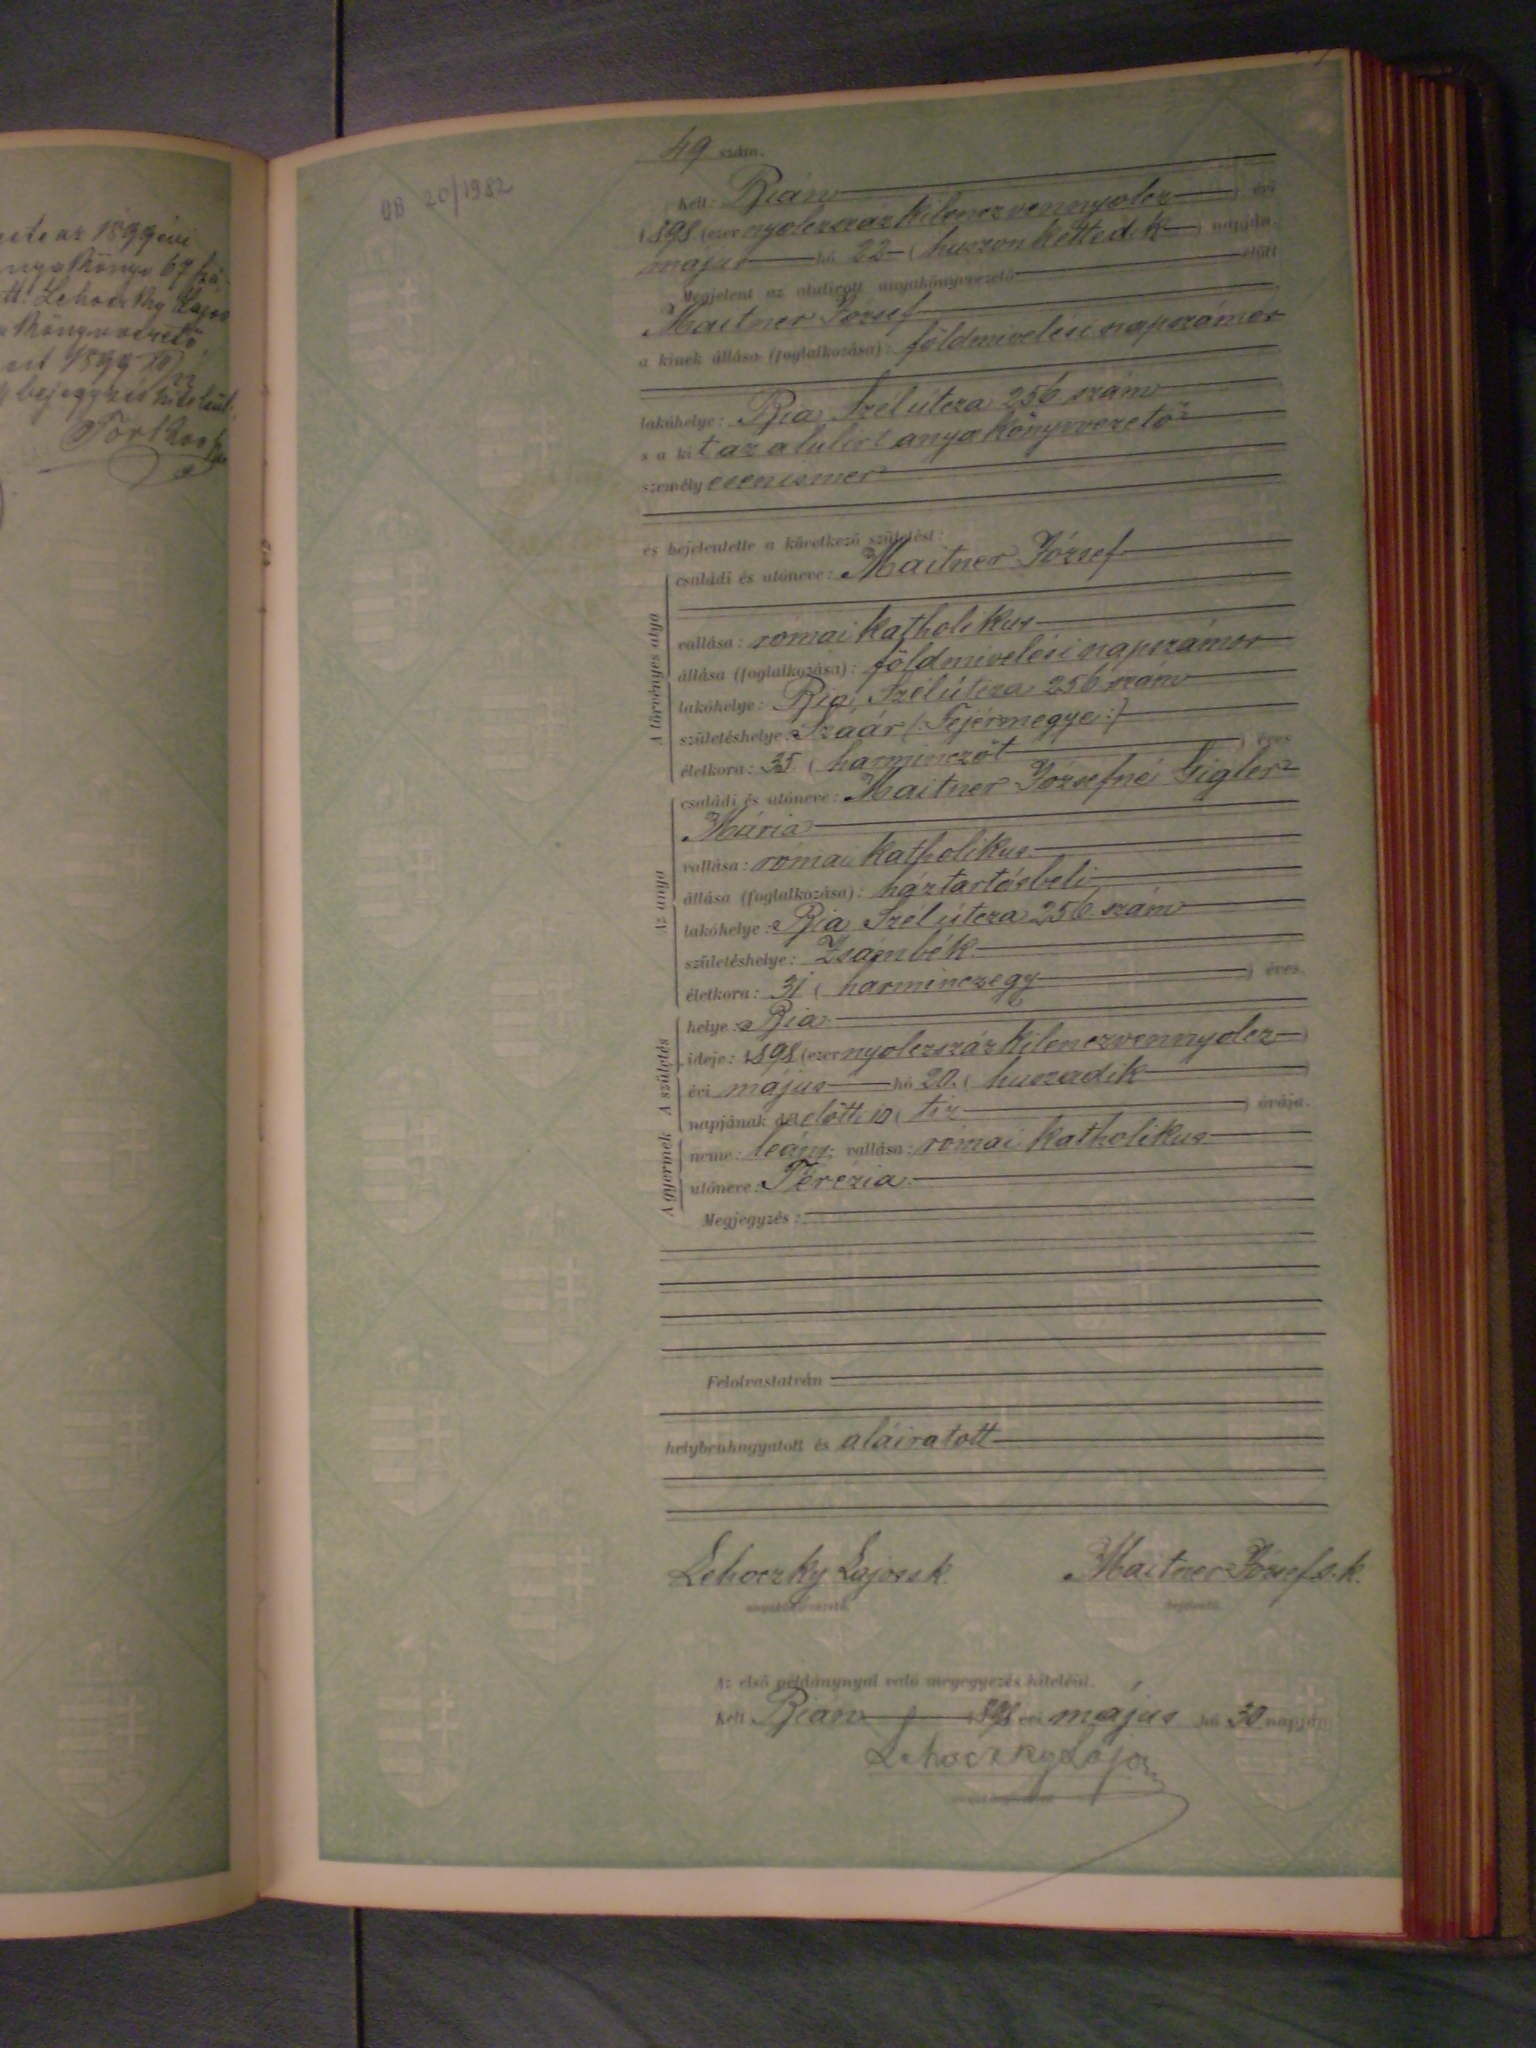 az 1899 évi
nyakönyv 67 szá
Lehoczky Lajos
könyvvezető
1899
bejegyzés hiteléül
OB 20/1982
49 szám.
Kelt: Bián
1898 (ezer nyolczszáz kilenczvennyolcz) évi
május hó 22 (huszonkettedik) napján.
Megjelent az alulirott anyakönyvvezető előtt
Maitner József
a kinek állása (foglalkozása): földmivelési napszámos
lakóhelye: Bia Szél útcza 256 szám
s a kit az alulirt anyakönyvvezető
személyesen ismer
és bejelentette a következő születést:
A törvényes atya
családi és utóneve: Maitner József
vallása: római katholikus
állása (foglalkozása): földmivelési napszámos
lakóhelye: Bia, Szél útcza 256 szám
születéshelye: Szaár (: Fejérmegye :)
életkora: 35 (harminczöt) éves
Az anya
családi és utóneve: Maitner Józsefné Gigler
Mária
vallása: római katholikus
állása (foglalkozása): háztartásbeli
lakóhelye: Bia Szél útcza 256 szám
születéshelye: Zsámbék
életkora: 31 (harminczegy) éves.
A születés
helye: Bia
ideje: 1898 (ezer nyolczszáz kilenczvennyolcz)
évi május hó 20. (huszadik)
napjának d.előtti 10 (tiz) órája.
A gyermek
neme: leány; vallása: római katholikus
utóneve: Terézia.
Megjegyzés:
Felolvastatván
helybenhagyatott és aláiratott
Lehoczky Lajos s.k. Maitner József s.k.
anyakönyvvezető. bejelentő.
Az első példánynyal való megegyezés hiteléül.
Kelt Bián 1898 évi május hó 30 napján
Lehoczky Lajos